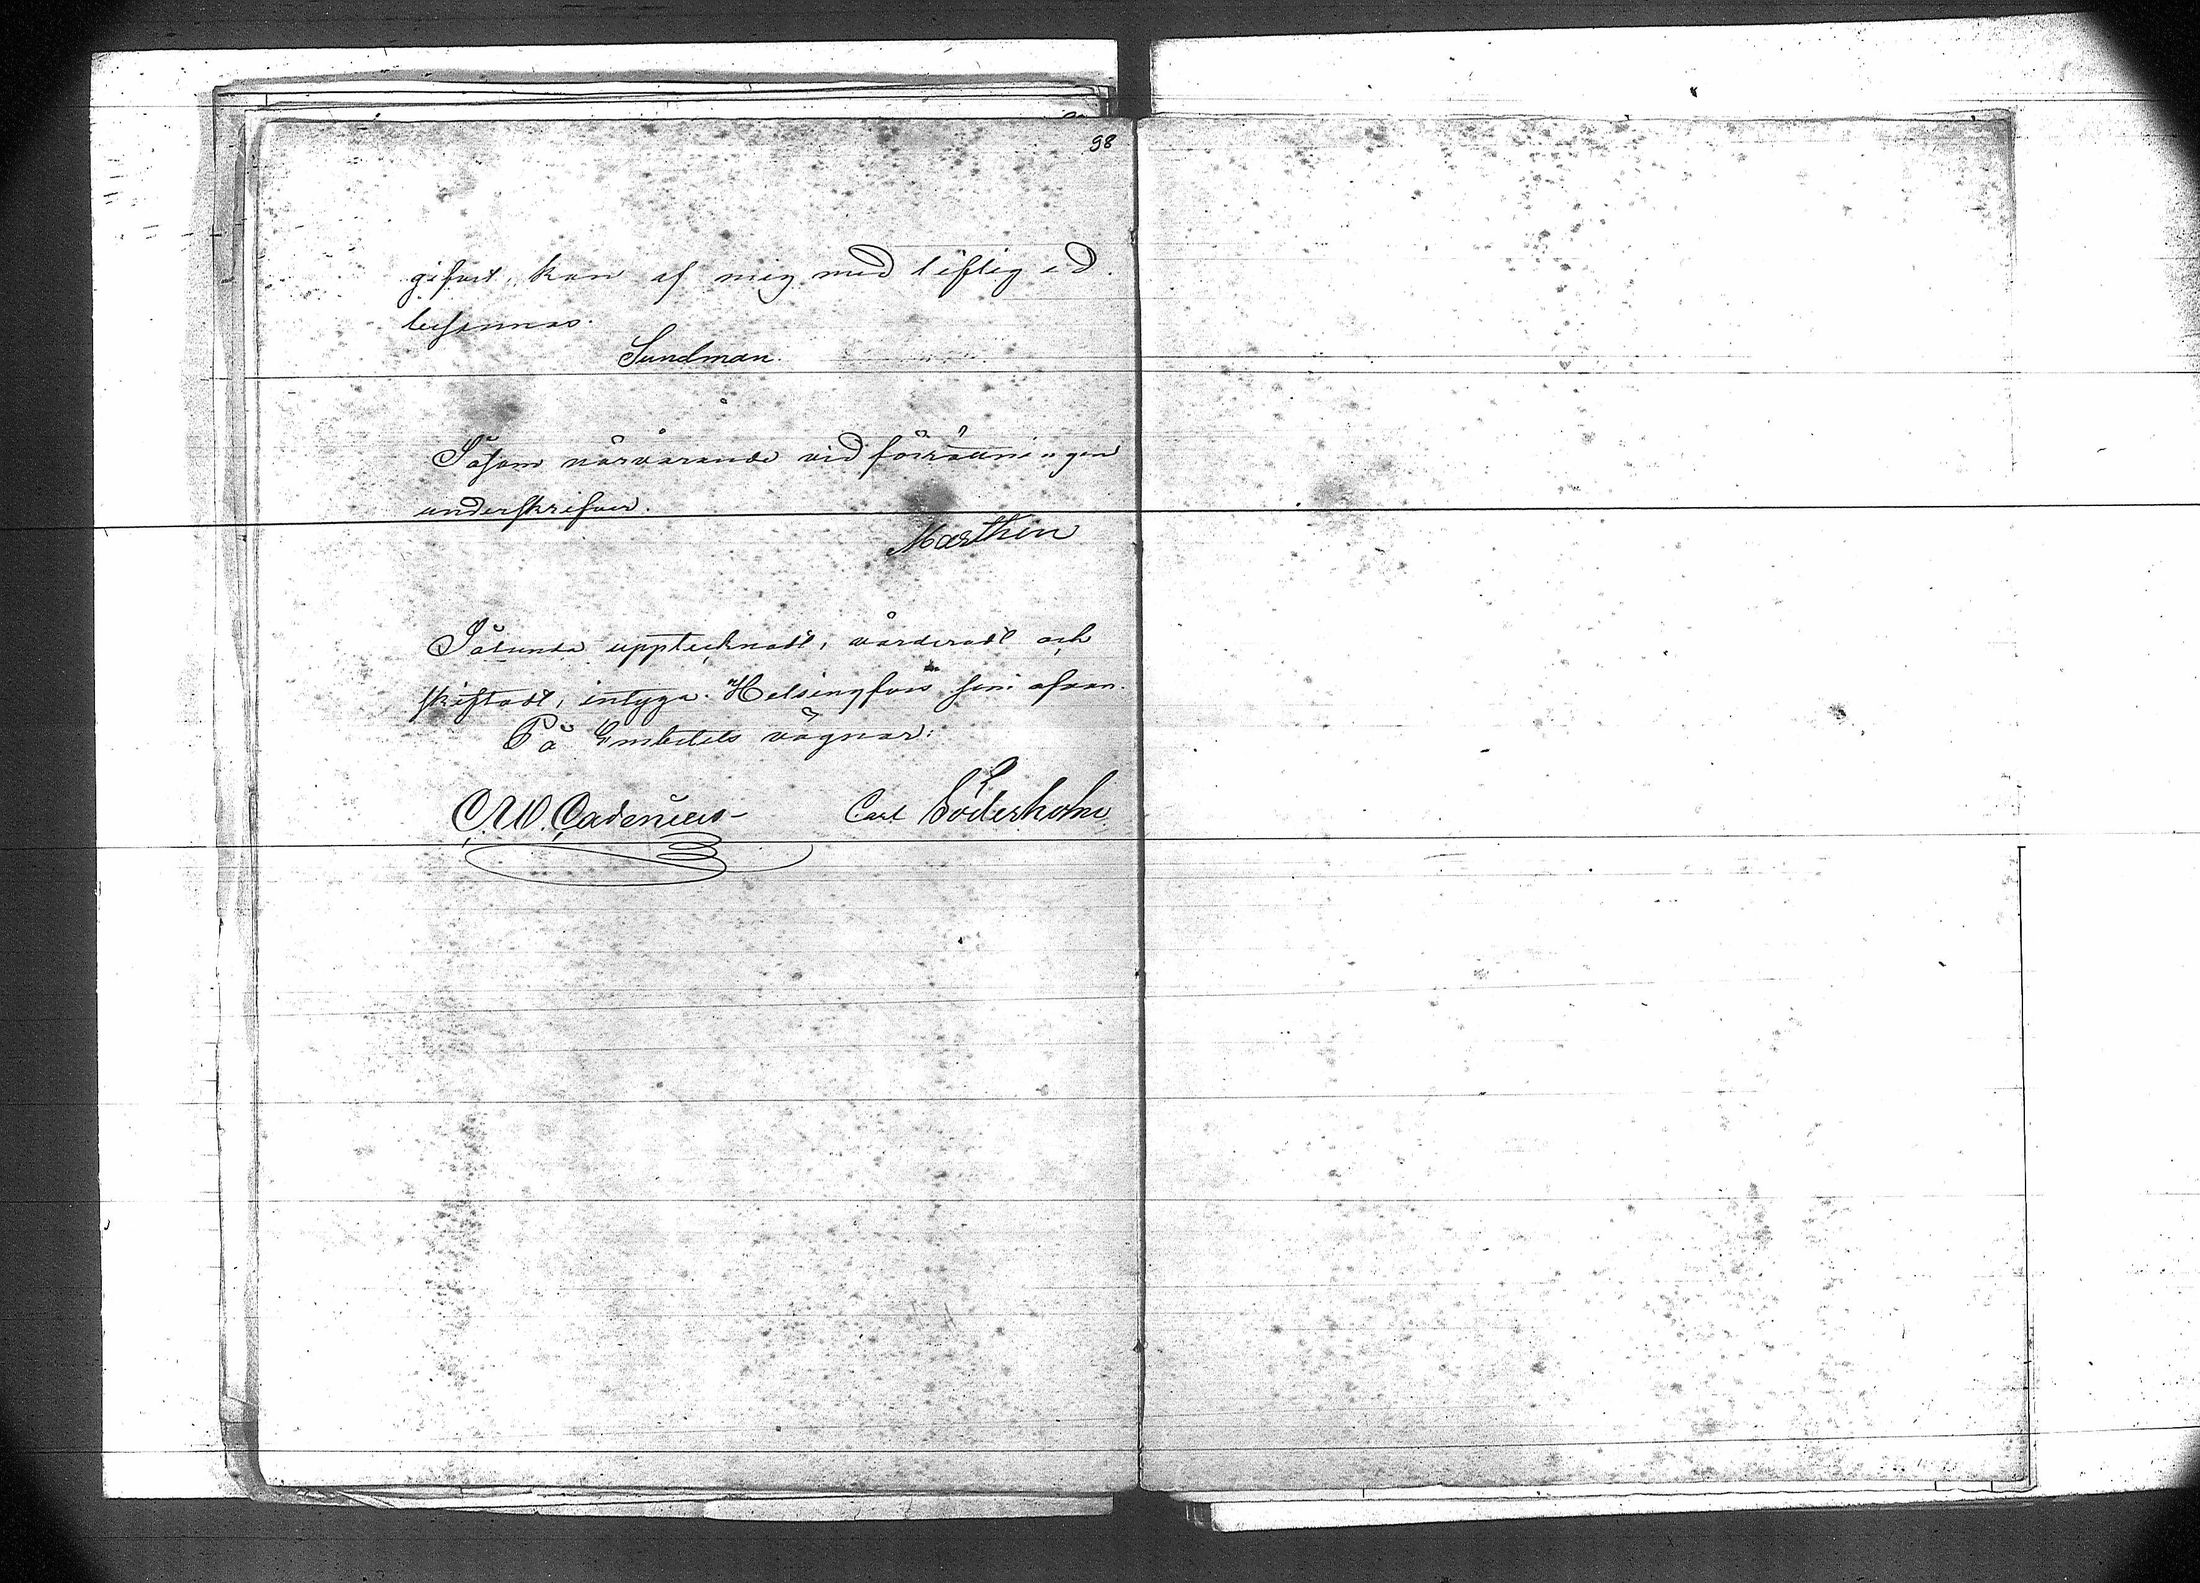 98
gifvit, kan af mig med liflig ed
besannas.
Sundman.
Såsom närvarande vid förrättningen
underskrifver.
Marthin
Sålunda upptecknadt, värderadt och
skiftadt, intyga. Helsingfors som ofvan.
På Embetets vägnar:
C. W. Cadenius Carl Söderholm